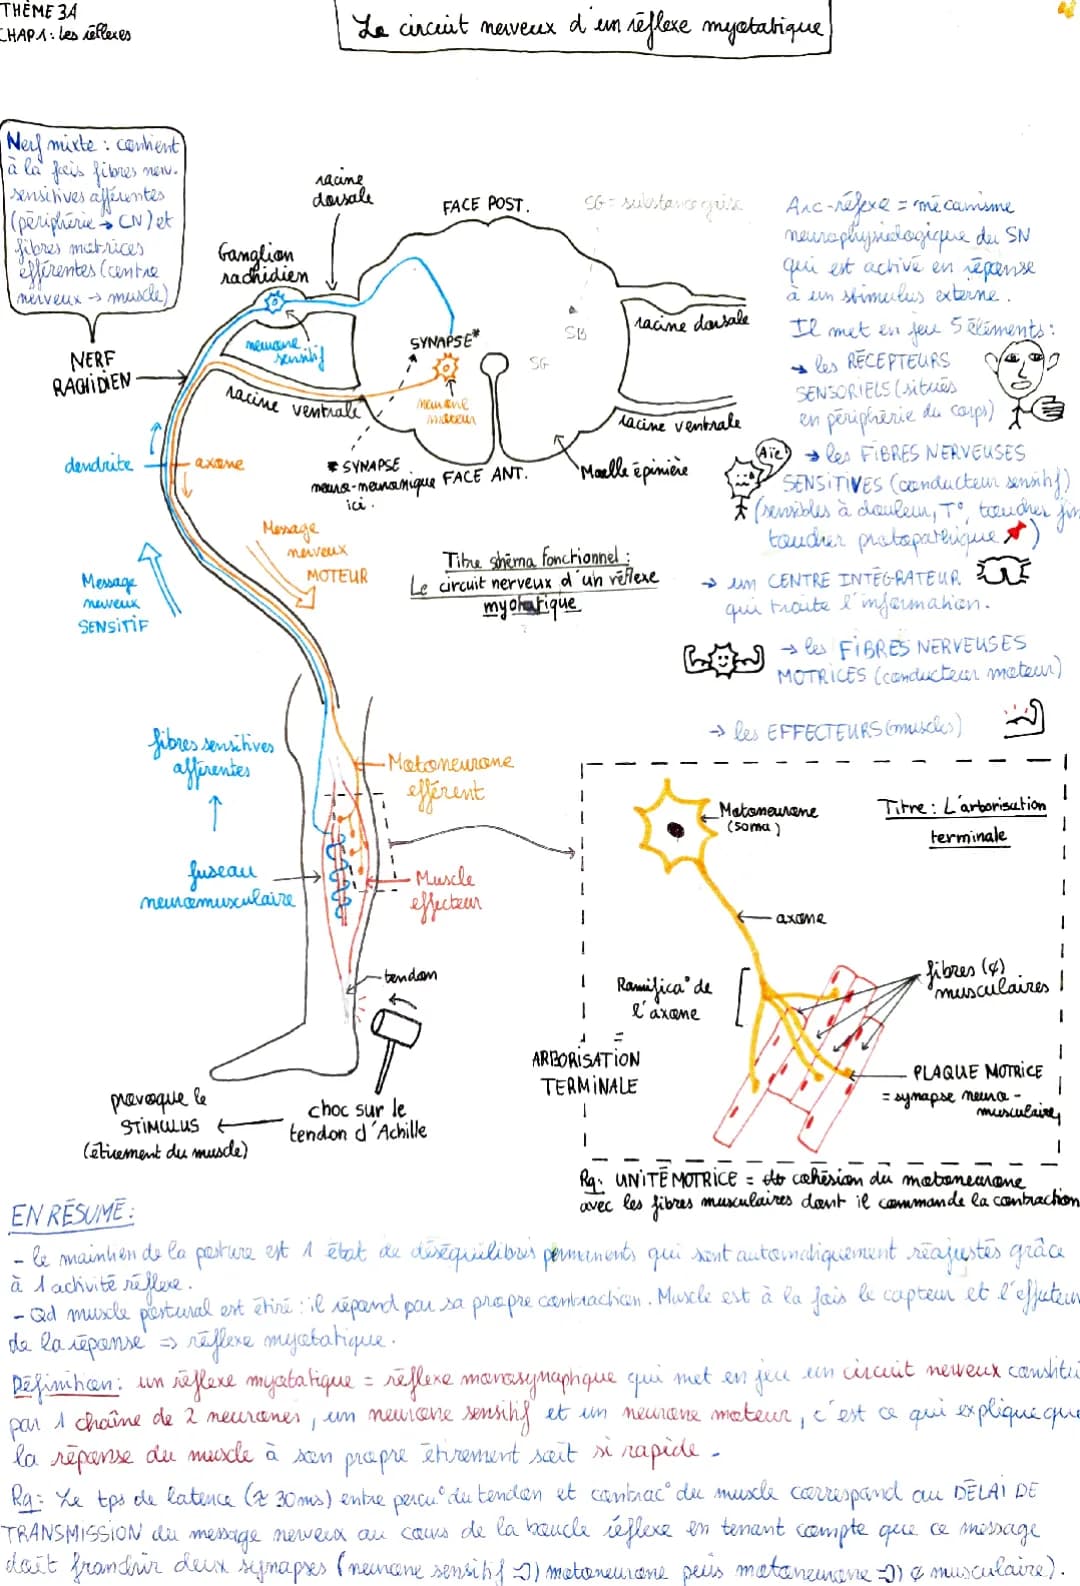 THÈME 3A
CHAP1: les réflexes
Le circuit nerveux d'un réflexe myotatique
Nerf mixte : contient
à la fois fibres nerv.
sensitives afférentes
(périphérie → CN) et
fibres motrices
efférentes (centre
nerveux → muscle)
NERF
RACHIDIEN
racine
dorsale
Ganglion
rachidien
FACE POST.
SG = substance grise
neurone
sensitif
SYNAPSE*
SB
SG
racine dorsale
racine ventrale
neurone
moteur
racine ventrale
dendrite
axone
* SYNAPSE
neuro-neuronique
ici.
FACE ANT.
Moelle épinière
Message
nerveux
MOTEUR
Message
nerveux
SENSITIF
Titre shéma fonctionnel :
Le circuit nerveux d'un réflexe
myotatique
Arc-réflexe = mécanisme
neurophysiologique du SN
qui est activé en réponse
à un stimulus externe.
Il met en jeu 5 éléments :
→ les RÉCEPTEURS
SENSORIELS (situés
en périphérie du corps)
Aïe
→ les FIBRES NERVEUSES
SENSITIVES (conducteur sensitif)
(sensibles à douleur, T°, toucher fin
toucher protopathique )
→ un CENTRE INTÉGRATEUR
qui traite l'information.
→ les FIBRES NERVEUSES
MOTRICES (conducteur moteur)
→ les EFFECTEURS (muscles)
fibres sensitives
afférentes
Motoneurone
efférent
fuseau
neuromusculaire
Muscle
effecteur
tendon
choc sur le
tendon d'Achille
provoque le
STIMULUS
(étirement du muscle)
Titre : L'arborisation
terminale
Motoneurone
(soma)
axone
Ramifica° de
l'axone
=
ARBORISATION
TERMINALE
fibres (¢)
musculaires
PLAQUE MOTRICE
= synapse neuro-
musculaire
Rq: UNITÉ MOTRICE = cohésion du motoneurone
avec les fibres musculaires dont il commande la contraction
EN RÉSUMÉ :
- le maintien de la posture est 1 état de déséquilibres permanents qui sont automatiquement réajustés grâce
à 1 activité réflexe.
- Qd muscle postural est étiré : il répond par sa propre contraction. Muscle est à la fois le capteur et l'effecteur
de la réponse => réflexe myotatique.
Définition : un réflexe myotatique = réflexe monosynaptique qui met en jeu un circuit nerveux constitué
par 1 chaîne de 2 neurones, un neurone sensitif et un neurone moteur, c'est ce qui explique que
la réponse du muscle à son propre étirement soit si rapide.
Rq: Le tps de latence (≈ 30ms) entre percu° du tendon et contrac° du muscle correspond au DÉLAI DE
TRANSMISSION du message nerveux au cours de la boucle réflexe en tenant compte que ce message
doit franchir deux synapses (neurone sensitif motoneurone puis motoneurone ¢ musculaire).